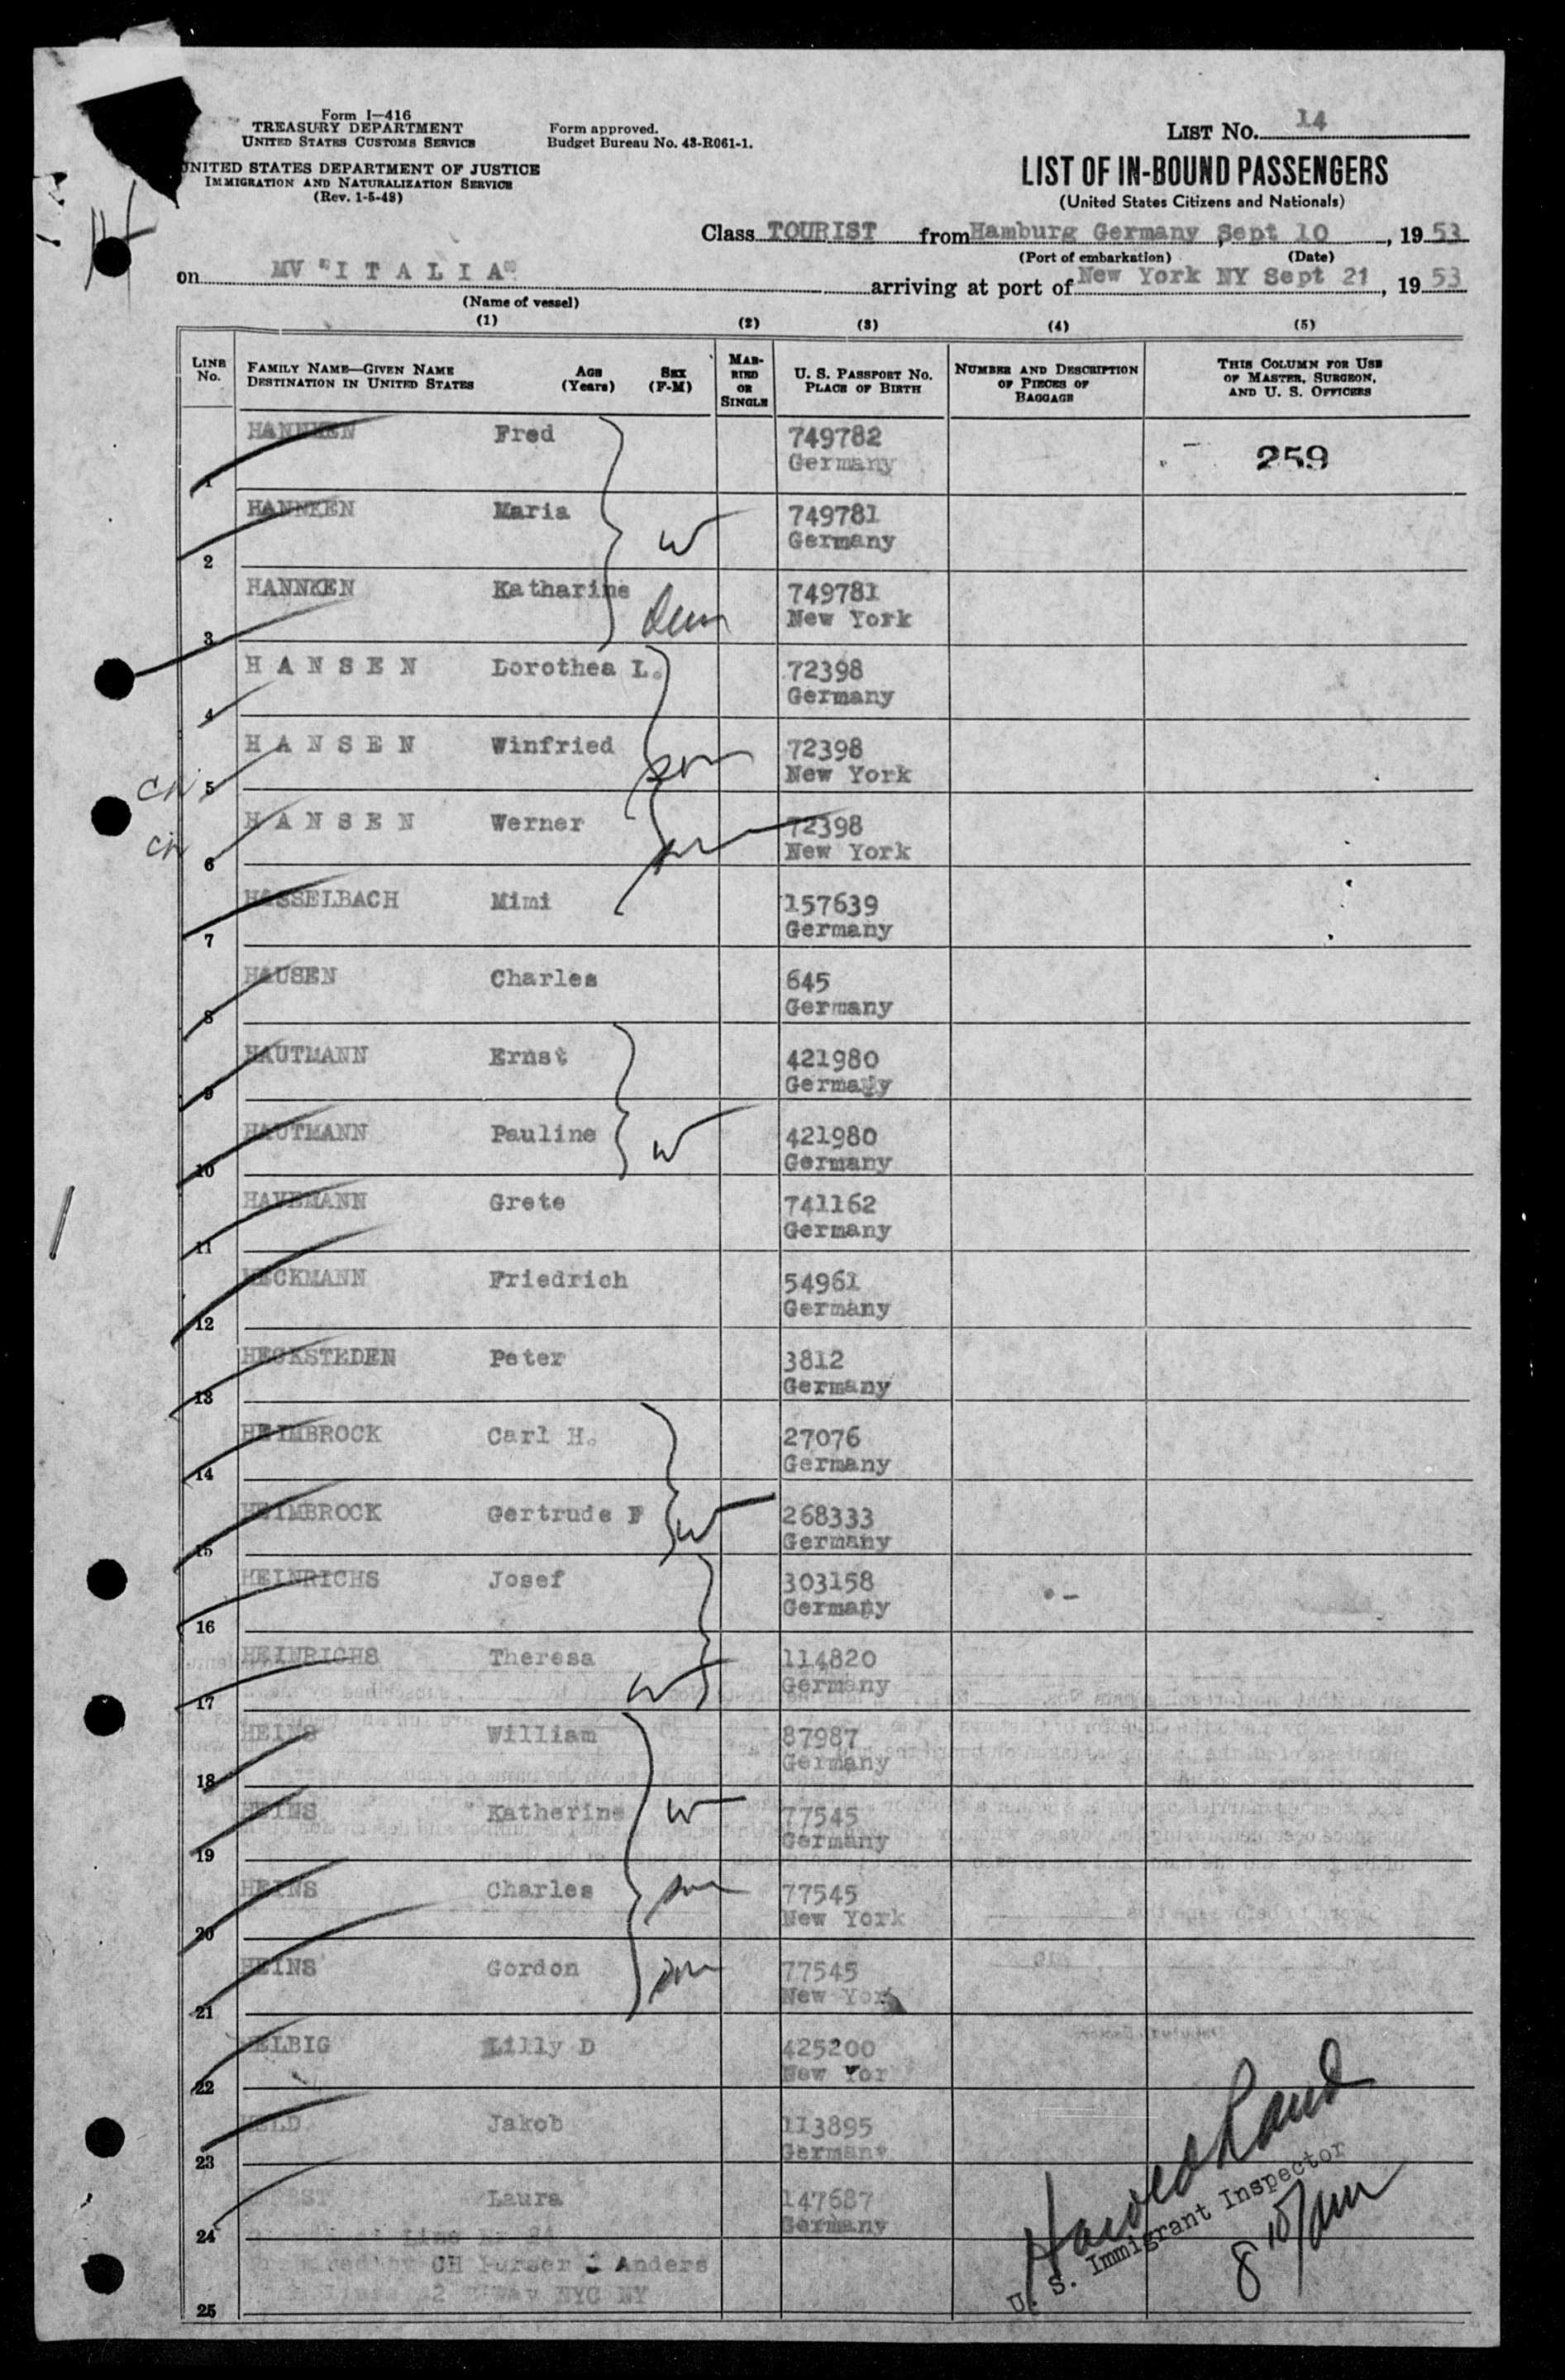 Form I—416
TREASURY DEPARTMENT
UNITED STATES CUSTOMS SERVICE
Form approved.
Budget Bureau No. 43-R061-1.
LIST NO. 14
UNITED STATES DEPARTMENT OF JUSTICE
IMMIGRATION AND NATURALIZATION SERVICE
(Rev. 1-5-48)
LIST OF IN-BOUND PASSENGERS
(United States Citizens and Nationals)
Class TOURIST from Hamburg Germany, Sept 10, 1953
(Port of embarkation) (Date)
on MV "I T A L I A" arriving at port of New York NY Sept 21, 1953
(Name of vessel)
(1) (2) (3) (4) (5)
LINE No. FAMILY NAME—GIVEN NAME DESTINATION IN UNITED STATES AGE (Years) SEX (F-M) MARRIED OR SINGLE U. S. PASSPORT NO. PLACE OF BIRTH NUMBER AND DESCRIPTION OF PIECES OF BAGGAGE THIS COLUMN FOR USE OF MASTER, SURGEON, AND U. S. OFFICERS
1 HANNKEN Fred 749782 259
Germany
2 HANNKEN Maria W 749781
Germany
3 HANNKEN Katharine 749781
New York
4 H A N S E N Dorothea L. 72398
Germany
5 H A N S E N Winfried son 72398
New York
6 H A N S E N Werner son 72398
New York
7 HASSELBACH Mimi 157639
Germany
8 HAUSEN Charles 645
Germany
9 HAUTMANN Ernst 421980
Germany
10 HAUTMANN Pauline W 421980
Germany
11 HAVEMANN Grete 741162
Germany
12 HECKMANN Friedrich 54961
Germany
13 HECKSTEDEN Peter 3812
Germany
14 HEIMBROCK Carl H. 27076
Germany
15 HEIMBROCK Gertrude F W 268333
Germany
16 HEINRICHS Josef 303158
Germany
17 HEINRICHS Theresa W 114820
Germany
18 HEINS William 87987
Germany
19 HEINS Katherine W 77545
Germany
20 HEINS Charles son 77545
New York
21 HEINS Gordon son 77545
New York
22 HELBIG Lilly D 425200
New Yor
23 HELD Jakob 113895
Germany
24 Laura 147687
Germany
Line
by CH Purser J Anders
25 NYC NY
Harold Laud
U. S. Immigrant Inspector
8 15/am